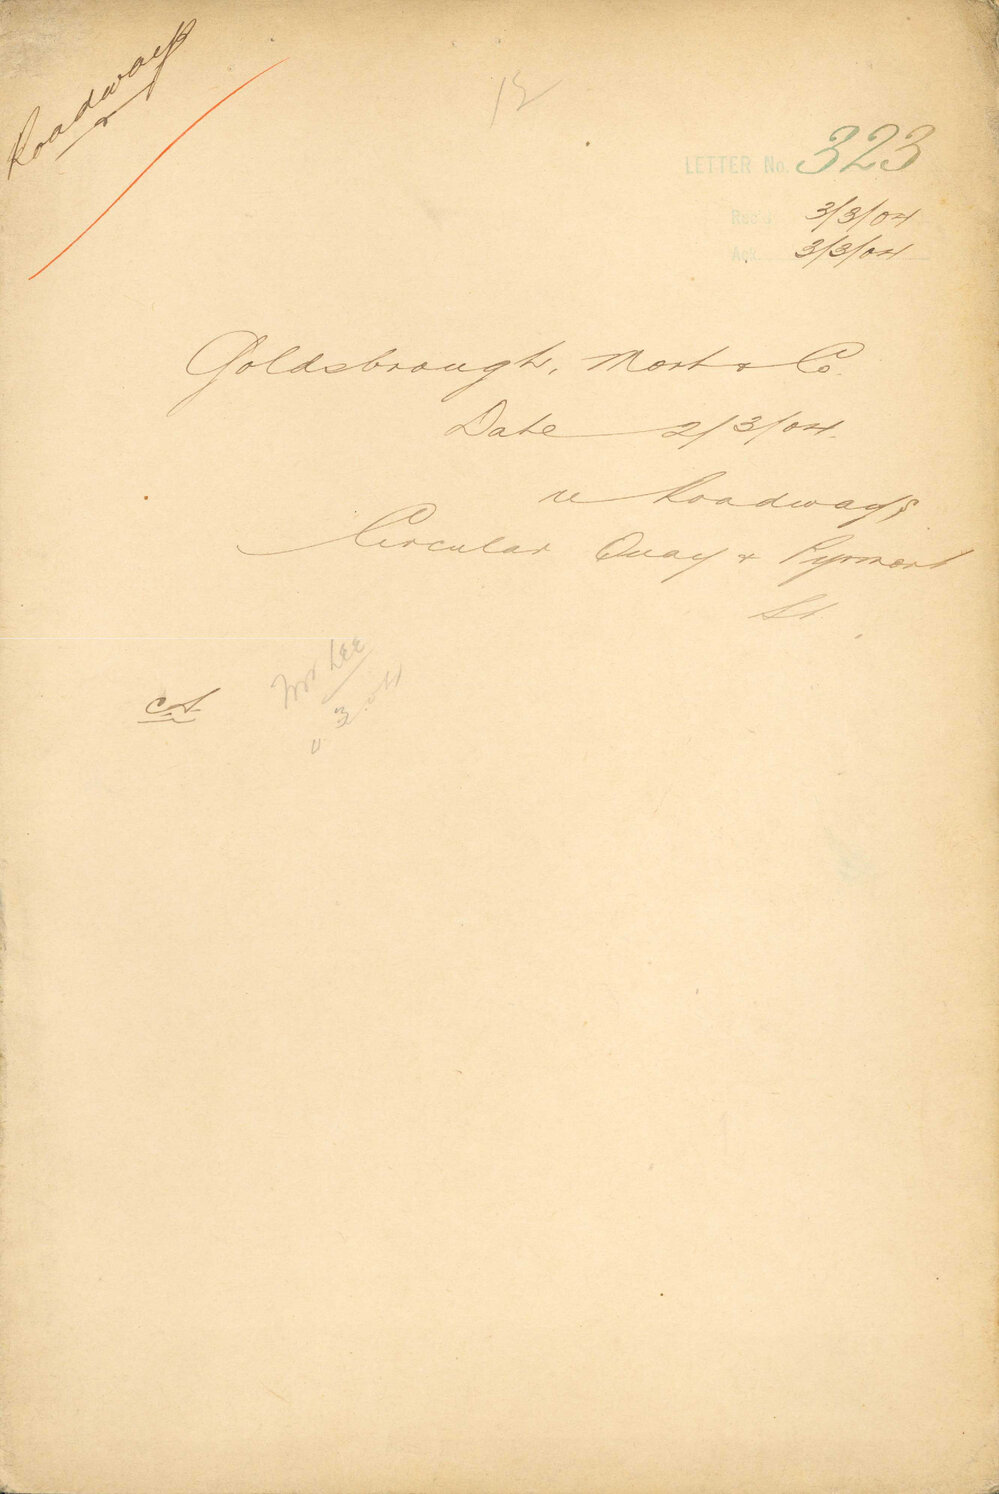 Roadways
12
LETTER No. 323
Rec'd 3/3/04
Ack. 3/3/04
Goldsbrough, Mort & Co.
Date 2/3/04.
re Roadways
Circular Quay & Pyrmont
St.
Mr LEE
3.04